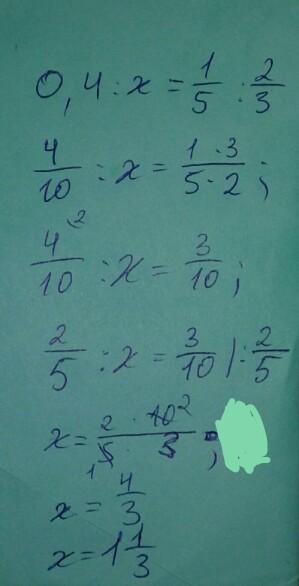 0,4 : x = 1/5 : 2/3
4/10 : x = (1 · 3)/(5 · 2) ;
4/10 ^(2 : x = 3/10 ;
2/5 : x = 3/10 | : 2/5
x = (2 · 10 2)/(1 5 · 3) ;
x = 4/3
x = 1 1/3